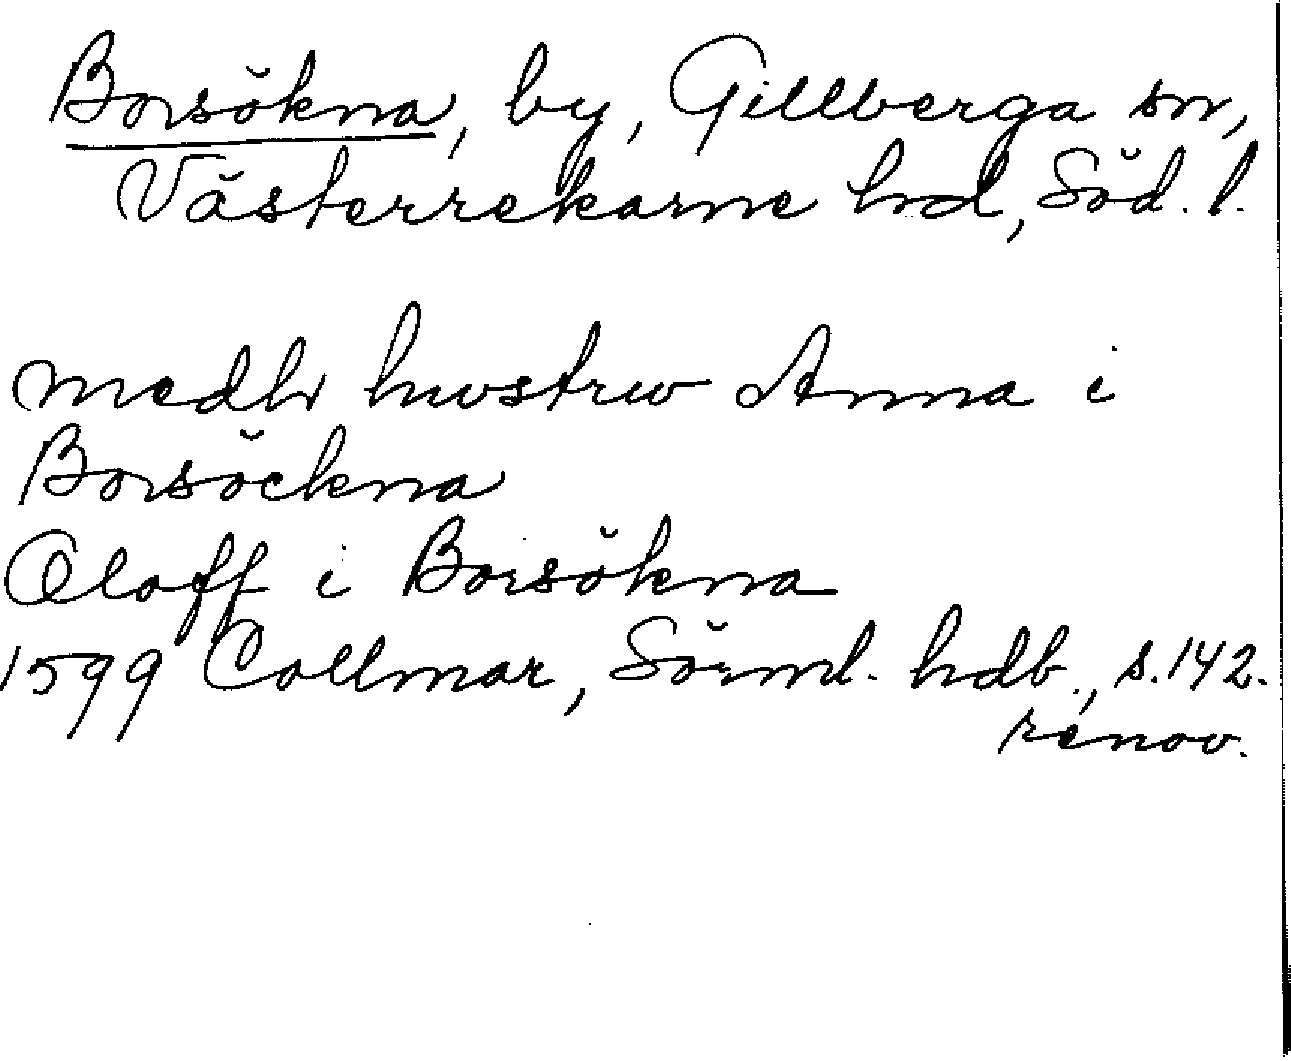 Borsökna, by, Gillberga sn,
Västerrekarne hd, Söd. l.
medh hwstrw Anna i
Borsöckna
Oloff i Borsökna
1599 Collmar, Sörml. hdb., s. 142.
renov.